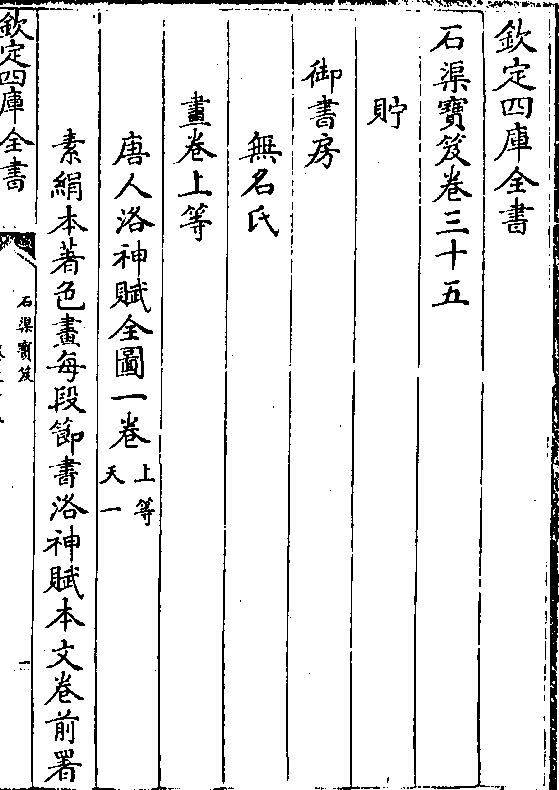 欽定四庫全書
石渠寶笈卷三十五
貯
御書房
無名氏
畫卷上等
唐人洛神賦全圖一卷上等天一
素絹本著色畫每段節書洛神賦本文卷前署
欽定四庫全書
石渠寶笈
一